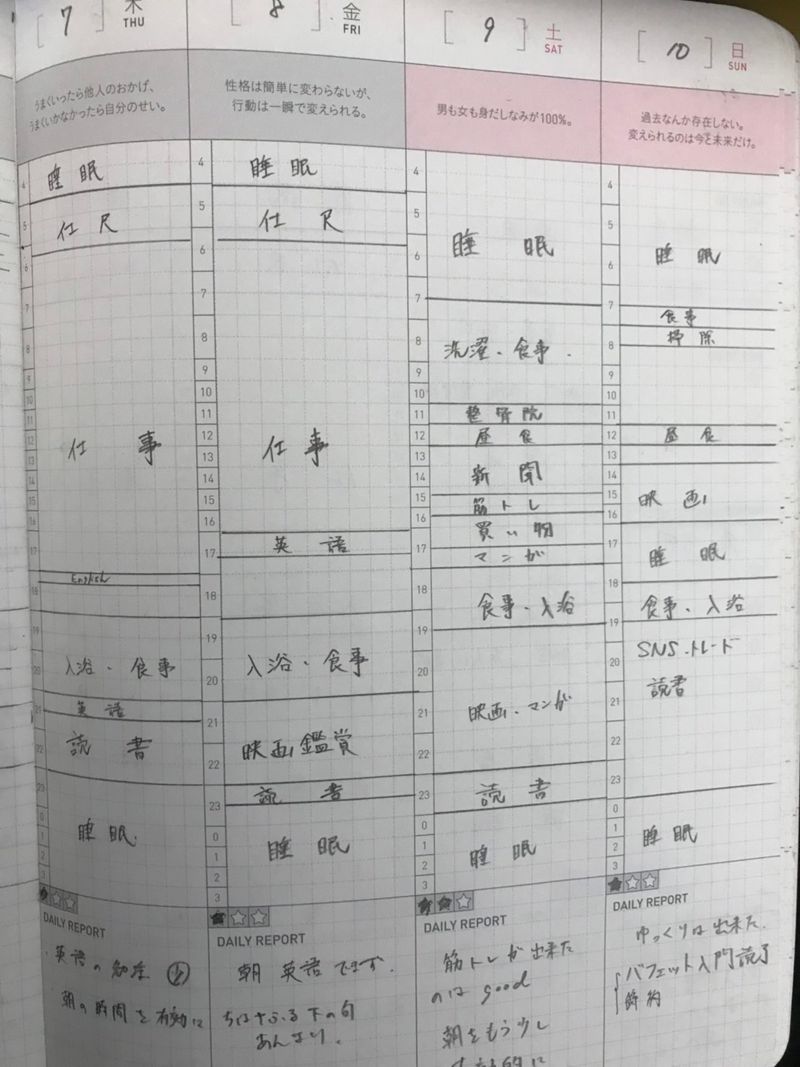 [ 7 ] 木
THU
うまくいったら他人のおかげ、
うまくいかなかったら自分のせい。
4
5
6
7
8
9
10
11
12
13
14
15
16
17
18
19
20
21
22
23
0
1
2
3
睡眠
仕尺
仕事
English
入浴・食事
英語
読書
睡眠
DAILY REPORT
英語の勉強
朝の時間を有効に
[ 8 ] 金
FRI
性格は簡単に変わらないが、
行動は一瞬で変えられる。
4
5
6
7
8
9
10
11
12
13
14
15
16
17
18
19
20
21
22
23
0
1
2
3
睡眠
仕尺
仕事
英語
入浴・食事
映画鑑賞
読書
睡眠
DAILY REPORT
朝 英語できず.
ちはやふる下の句
あんまり。
[ 9 ] 土
SAT
男も女も身だしなみが100%。
4
5
6
7
8
9
10
11
12
13
14
15
16
17
18
19
20
21
22
23
0
1
2
3
睡眠
洗濯・食事.
整骨院
昼食
新聞
筋トレ
買い物
マンガ
食事・入浴
映画・マンガ
読書
睡眠
DAILY REPORT
筋トレが出来た
のは good
朝をもう少し
[ 10 ] 日
SUN
過去なんか存在しない。
変えられるのは今と未来だけ。
4
5
6
7
8
9
10
11
12
13
14
15
16
17
18
19
20
21
22
23
0
1
2
3
睡眠
食事
掃除
昼食
映画
睡眠
食事・入浴
SNS・トレード
読書
睡眠
DAILY REPORT
ゆっくりは出来た.
バフェット入門読了
節約